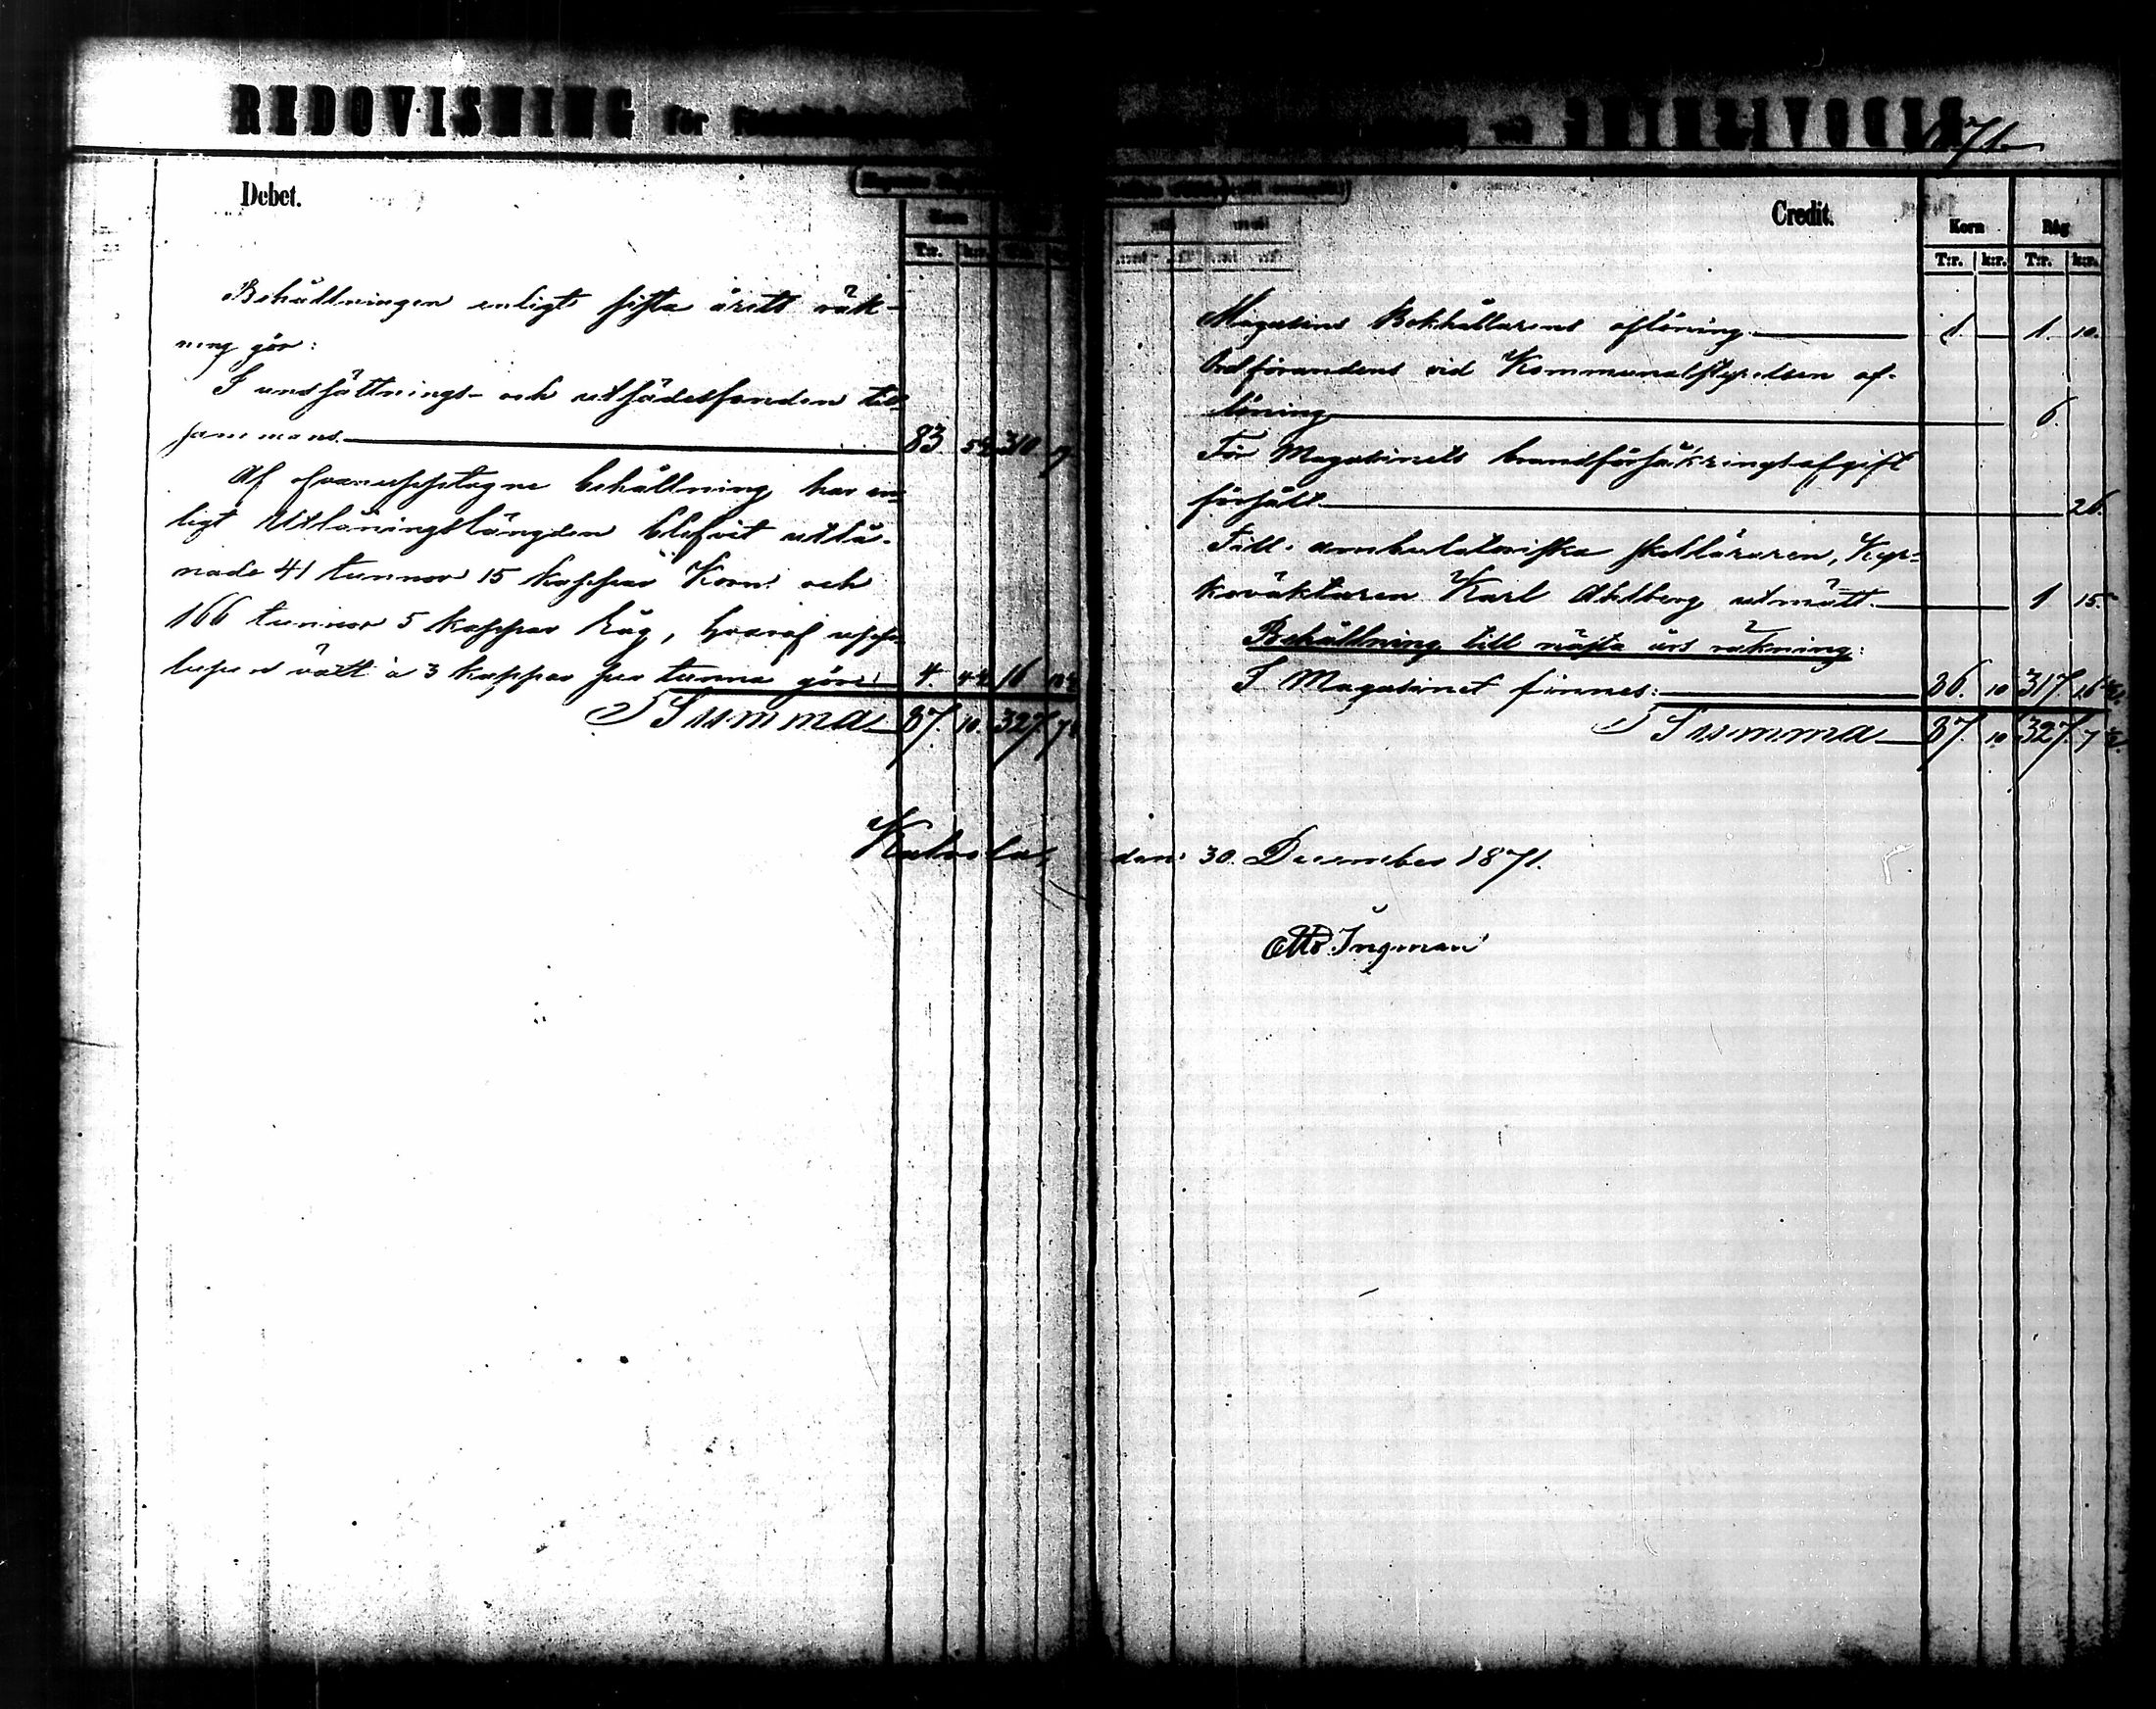 REDOVISNING för
1871.
Debet.
Korn
T:r. k:r.
Behållningen enligt sista årets räk-
ning gör:
I undsättnings- och utsädesfonden till-
sammans. 83 5½ 310 9
Af ofvanupptagne behållning har en-
ligt Utlåningslängden blifvit utlå-
nade 41 tunnor 15 kappar Korn och
166 tunnor 5 kappar Råg, hvaraf upp-
lupen vält à 3 kappar per tunna gör: 4. 4½ 16
Summa 87. 10. 327. 7½
Credit.
Korn Råg
T:r. k:r. T:r. k:r.
Magasins Bokhållarens aflöning 1. — 1. 10.
Ordförandens vid Kommunalstyrelsen af-
löning 6.
För Magasinets brandförsäkringsafgift
försålt 26.
Till ambulatoriska skolläraren, Kyr-
koväktaren Karl Ahlberg utmätt. 1 15.
Behållning till nästa års räkning:
I Magasinet finnes: 86. 10 317. 16½.
Summa 87. 10 327. 7½.
den 30. December 1871.
Otto Ingman